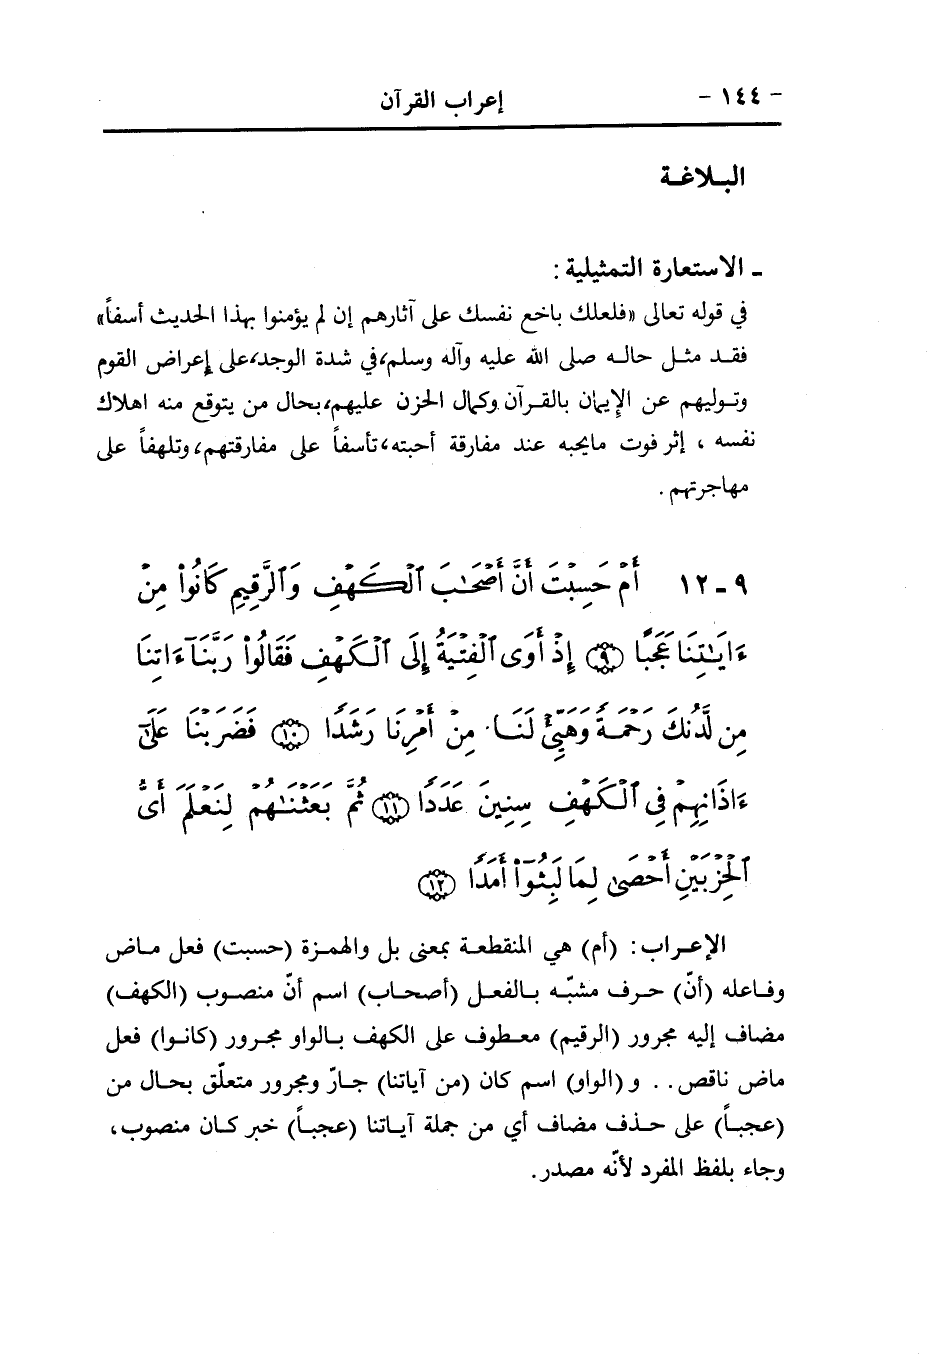 - ١٤٤ -
إعراب القرآن
البـلاغـة
ـ الاستعارة التمثيلية :
في قوله تعالى «فلعلك باخع نفسك على آثارهم إن لم يؤمنوا بهذا الحديث أسفاً»
فقـد مثـل حالـه صلى الله عليه وآله وسلم، في شدة الوجد، على إعراض القوم
وتـوليهم عن الإيمان بالقـرآن وكمال الحزن عليهم، بحال من يتوقع منه اهلاك
نفسه ، إثر فوت مايحبه عند مفارقة أحبته، تأسفاً على مفارقتهم، وتلهفاً على
مهاجرتهم .
٩ ـ ١٢ أَمْ حَسِبْتَ أَنَّ أَصْحَٰبَ ٱلْكَهْفِ وَٱلرَّقِيمِ كَانُوا۟ مِنْ
ءَايَٰتِنَا عَجَبًا ۝٩ إِذْ أَوَى ٱلْفِتْيَةُ إِلَى ٱلْكَهْفِ فَقَالُوا۟ رَبَّنَآ ءَاتِنَا
مِن لَّدُنكَ رَحْمَةً وَهَيِّئْ لَنَا مِنْ أَمْرِنَا رَشَدًا ۝١٠ فَضَرَبْنَا عَلَىٰٓ
ءَاذَانِهِمْ فِى ٱلْكَهْفِ سِنِينَ عَدَدًا ۝١١ ثُمَّ بَعَثْنَٰهُمْ لِنَعْلَمَ أَىُّ
ٱلْحِزْبَيْنِ أَحْصَىٰ لِمَا لَبِثُوٓا۟ أَمَدًا ۝١٢
الإعـراب: (أم) هي المنقطعـة بمعنى بل والهمـزة (حسبت) فعل مـاض
وفـاعله (أنّ) حـرف مشبّـه بـالفعـل (أصحـاب) اسم أنّ منصـوب (الكهف)
مضـاف إليه مجرور (الرقيم) معـطوف على الكهف بـالواو مجـرور (كانـوا) فعل
ماض ناقص. . و (الواو) اسم كان (من آياتنا) جـارّ ومجرور متعلّق بحال من
(عجبـاً) على حـذف مضـاف أي من جملة آيـاتنا (عجبـاً) خبر كـان منصوب،
وجاء بلفظ المفرد لأنّه مصدر.